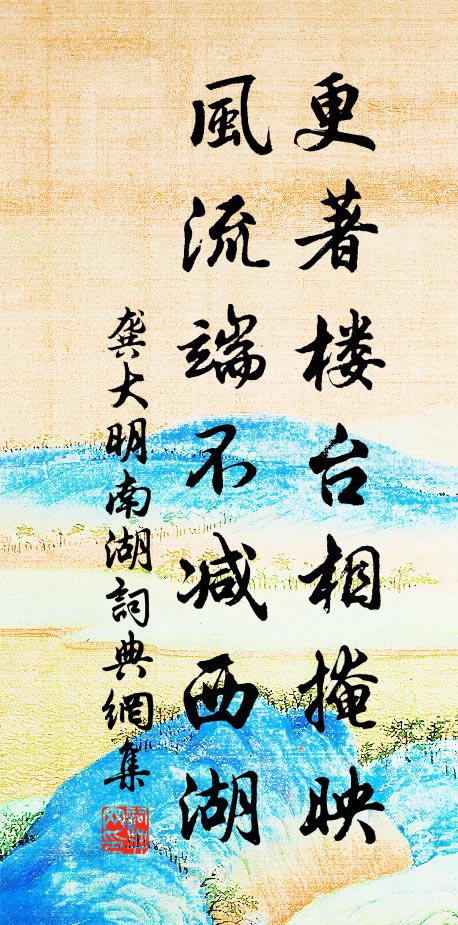 更著楼台相掩映
風流端不减西湖
龚大明南湖詞典網集